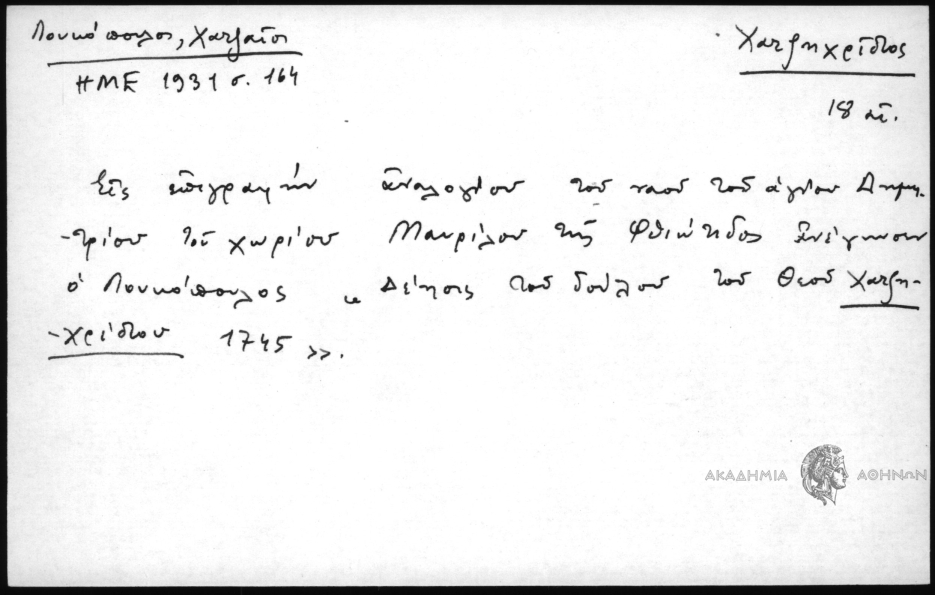 Λουκόπουλος, Χατζαῖοι
ΗΜΕ 1931 σ. 164
Χατζηχρίστος
18 αἰ.
Εἰς ἐπιγραφὴν ἀναλογίου τοῦ ναοῦ τοῦ ἁγίου Δημη-
-τρίου τοῦ χωρίου Μαυρίλου τῆς Φθιώτιδος ἀνέγνωσεν
ὁ Λουκόπουλος « Δέησις τοῦ δούλου τοῦ Θεοῦ Χατζη-
-χρίστου 1745 ».
ΑΚΑΔΗΜΙΑ ΑΘΗΝΩΝ